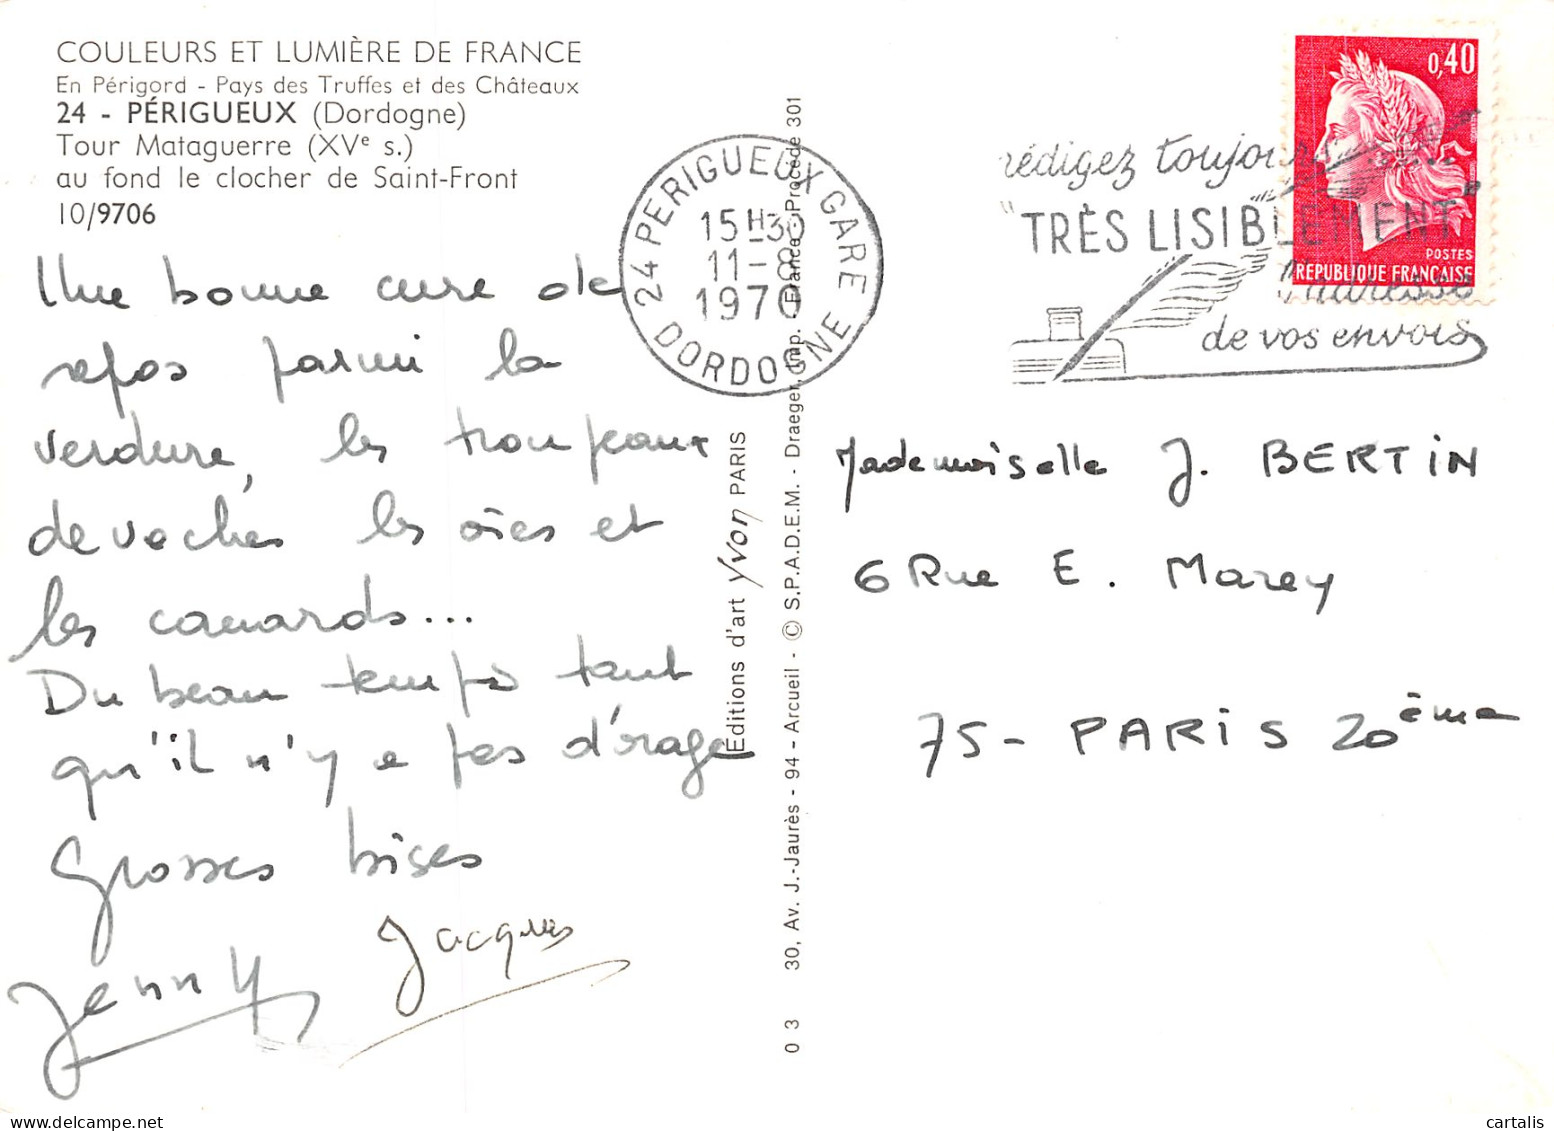 COULEURS ET LUMIÈRE DE FRANCE
En Périgord - Pays des Truffes et des Châteaux
24 - PÉRIGUEUX (Dordogne)
Tour Mataguerre (XVe s.)
au fond le clocher de Saint-Front
10/9706
Une bonne cure de
repos parmi la
verdure, les troupeaux
de vaches les oies et
les canards...
Du beau temps tant
qu'il n'y a pas d'orage
Grosses bises
Jenny Jacques
24 PERIGUEUX GARE
15H30
11-8
1970
DORDOGNE
Editions d'art Yvon PARIS
30, Av. J.-Jaurès - 94 - Arcueil - © S.P.A.D.E.M. - Draeger, Imp. France - Procédé 301
0 3
rédigez toujours
"TRÈS LISIBLEMENT"
l'adresse
de vos envois
0,40
POSTES
REPUBLIQUE FRANÇAISE
Mademoiselle J. BERTIN
6 Rue E. Marey
75 - PARIS 20ème
cartalis